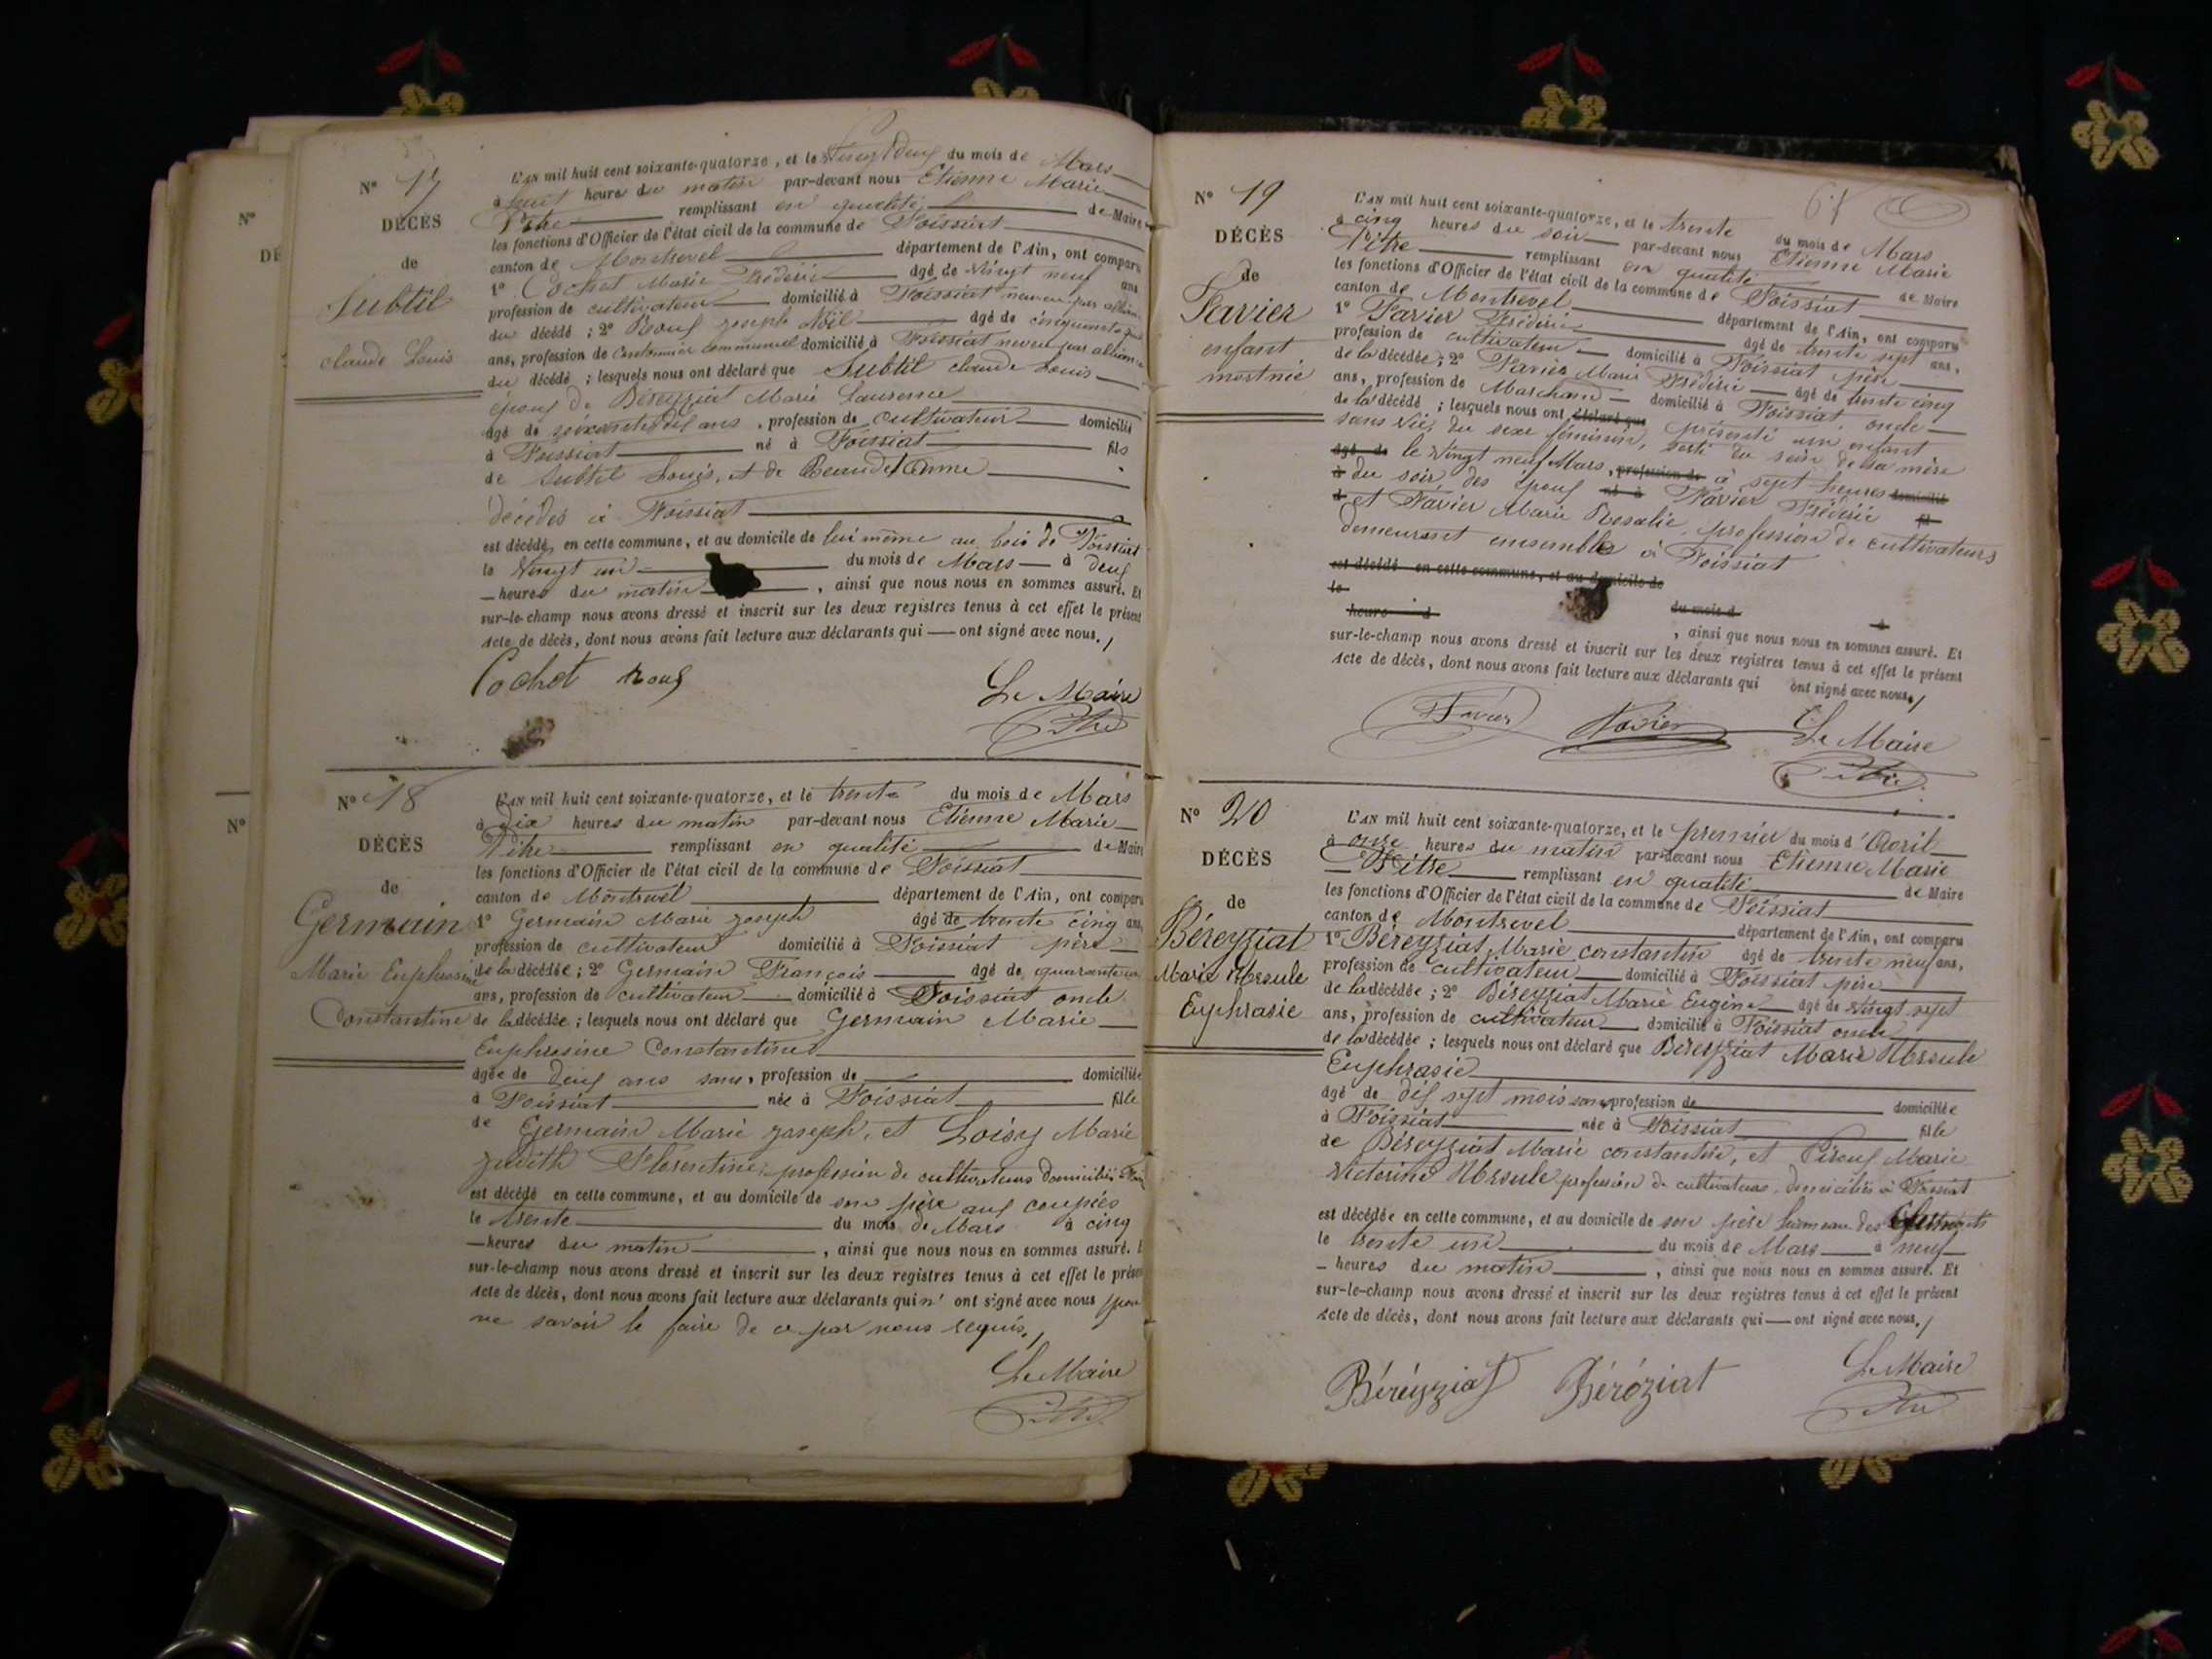 N° 17
DÉCÈS
de
Subtil
claude Louis
L'AN mil huit cent soixante-quatorze, et le Vingt deux du mois de Mars
à huit heures du matin par-devant nous Etienne Marie
Pitre remplissant en qualité de Maire
les fonctions d'Officier de l'état civil de la commune de Foissiat
canton de Montrevel département de l'Ain, ont comparu
1° Cochet Marie Frédéric âgé de Vingt neuf ans
profession de cultivateur domicilié à Foissiat neveu par alliance
du décédé ; 2° Roux joseph Noël âgé de cinquante
ans, profession de Cantonnier communal domicilié à Foissiat neveu par alliance
du décédé ; lesquels nous ont déclaré que Subtil claude Louis
époux de Béreyziat Marie Laurence
âgé de soixante dix ans, profession de cultivateur domicilié
à Foissiat né à Foissiat fils
de Subtil Louis, et de Beaudet Anne
décédés à Foissiat
est décédé en cette commune, et au domicile de lui même au bois de Foissiat
le Vingt un du mois de Mars à deux
heures du matin, ainsi que nous nous en sommes assuré. Et
sur-le-champ nous avons dressé et inscrit sur les deux registres tenus à cet effet le présent
acte de décès, dont nous avons fait lecture aux déclarants qui ont signé avec nous.
Cochet Roux
Le Maire
Pitre
N° 18
DÉCÈS
de
Germain
Marie Euphrosine
Constantine
L'AN mil huit cent soixante-quatorze, et le trente du mois de Mars
à dix heures du matin par-devant nous Etienne Marie
Pitre remplissant en qualité de Maire
les fonctions d'Officier de l'état civil de la commune de Foissiat
canton de Montrevel département de l'Ain, ont comparu
1° Germain Marie joseph âgé de trente cinq ans,
profession de cultivateur domicilié à Foissiat père
de la décédée ; 2° Germain François âgé de quarante
ans, profession de cultivateur domicilié à Foissiat oncle
de la décédée ; lesquels nous ont déclaré que Germain Marie
Euphrosine Constantine
âgée de deux ans sans, profession de domiciliée
à Foissiat née à Foissiat fille
de Germain Marie joseph, et Loisy Marie
judith Florentine, profession de cultivateurs domiciliés à
est décédé en cette commune, et au domicile de son père aux coupées
le trente du mois de Mars à cinq
heures du matin, ainsi que nous nous en sommes assuré. E
sur-le-champ nous avons dressé et inscrit sur les deux registres tenus à cet effet le présen
acte de décès, dont nous avons fait lecture aux déclarants qui n' ont signé avec nous pour
ne savoir le faire de ce par nous requis.
Le Maire
Pitre
67
N° 19
DÉCÈS
de
Favier
enfant
mort née
L'AN mil huit cent soixante-quatorze, et le trente du mois de Mars
à cinq heures du soir par-devant nous Etienne Marie
Pitre remplissant en qualité de Maire
les fonctions d'Officier de l'état civil de la commune de Foissiat
canton de Montrevel département de l'Ain, ont comparu
1° Favier Frédéric âgé de trente sept ans,
profession de cultivateur domicilié à Foissiat père
de la décédée ; 2° Favier Marie Frédéric âgé de trente cinq
ans, profession de Marchand domicilié à Foissiat, oncle
de la décédé ; lesquels nous ont déclaré que présenté un enfant
sans vie, du sexe féminin, sorti du sein de sa mère
âgé de le Vingt neuf Mars, profession de à sept heures domicilié
à du soir, des époux né à Favier Frédéric fil
d et Favier Marie Rosalie, profession de cultivateurs
demeurant ensemble à Foissiat
est décédé en cette commune, et au domicile de
le du mois d à
heure d, ainsi que nous nous en sommes assuré. Et
sur-le-champ nous avons dressé et inscrit sur les deux registres tenus à cet effet le présent
acte de décès, dont nous avons fait lecture aux déclarants qui ont signé avec nous.
Favier Favier
Le Maire
Pitre
N° 20
DÉCÈS
de
Béreyziat
Marie Ursule
Euphrasie
L'AN mil huit cent soixante-quatorze, et le premier du mois d'Avril
à onze heures du matin par-devant nous Etienne Marie
Pitre remplissant en qualité de Maire
les fonctions d'Officier de l'état civil de la commune de Foissiat
canton de Montrevel département de l'Ain, ont comparu
1° Béreyziat Marie constantin âgé de trente neuf ans,
profession de cultivateur domicilié à Foissiat père
de la décédée ; 2° Béreyziat Marie Eugène âgé de Vingt sept
ans, profession de cultivateur domicilié à Foissiat oncle
de la décédée ; lesquels nous ont déclaré que Béreyziat Marie Ursule
Euphrasie
âgé de dix sept mois sans profession de domiciliée
à Foissiat née à Foissiat fille
de Béreyziat Marie constantin, et Piroux Marie
Victorine Ursule profession de cultivateurs domiciliés à Foissiat
est décédée en cette commune, et au domicile de son père hameau des
le trente un du mois de Mars à neuf
heures du matin, ainsi que nous nous en sommes assuré. Et
sur-le-champ nous avons dressé et inscrit sur les deux registres tenus à cet effet le présent
acte de décès, dont nous avons fait lecture aux déclarants qui ont signé avec nous.
Béréyziat Béréziat
Le Maire
Pitre
N°
DÉ
N°